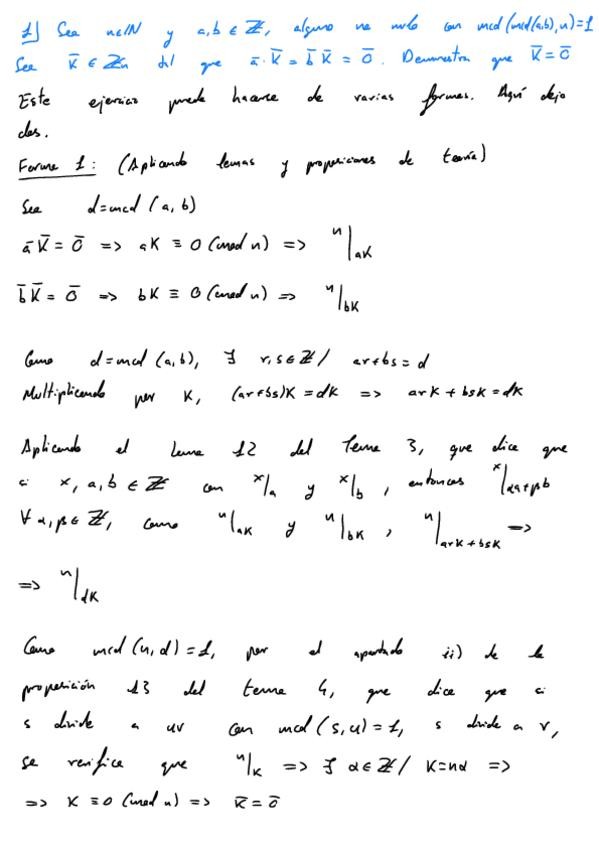 1] Sea n∈ℕ y a,b ∈ ℤ, alguno no nulo con mcd(mcd(a,b),n)=1
Sea k̄ ∈ ℤn tal que ā·k̄ = b̄k̄ = ō. Demuestra que k̄=ō
Este ejercicio puede hacerse de varias formas. Aquí dejo
dos.
Forma 1: (Aplicando lemas y proposiciones de teoría)
Sea d=mcd(a,b)
āk̄ = ō => ak ≡ 0 (mod n) => n|ak
b̄k̄ = ō => bk ≡ 0 (mod n) => n|bk
Como d=mcd(a,b), ∃ r,s∈ℤ / ar+bs=d
Multiplicando por k, (ar+bs)k=dk => ark+bsk=dk
Aplicando el lema 12 del Tema 3, que dice que
si x,a,b ∈ ℤ con x|a y x|b, entonces x|αa+βb
∀ α,β∈ℤ, como n|ak y n|bk, n|ark+bsk =>
=> n|dk
Como mcd(n,d)=1, por el apartado ii) de la
proposición 13 del tema 4, que dice que si
s divide a uv con mcd(s,u)=1, s divide a v,
se verifica que n|k => ∃ α∈ℤ / k=nα =>
=> k≡0 (mod n) => k̄=ō